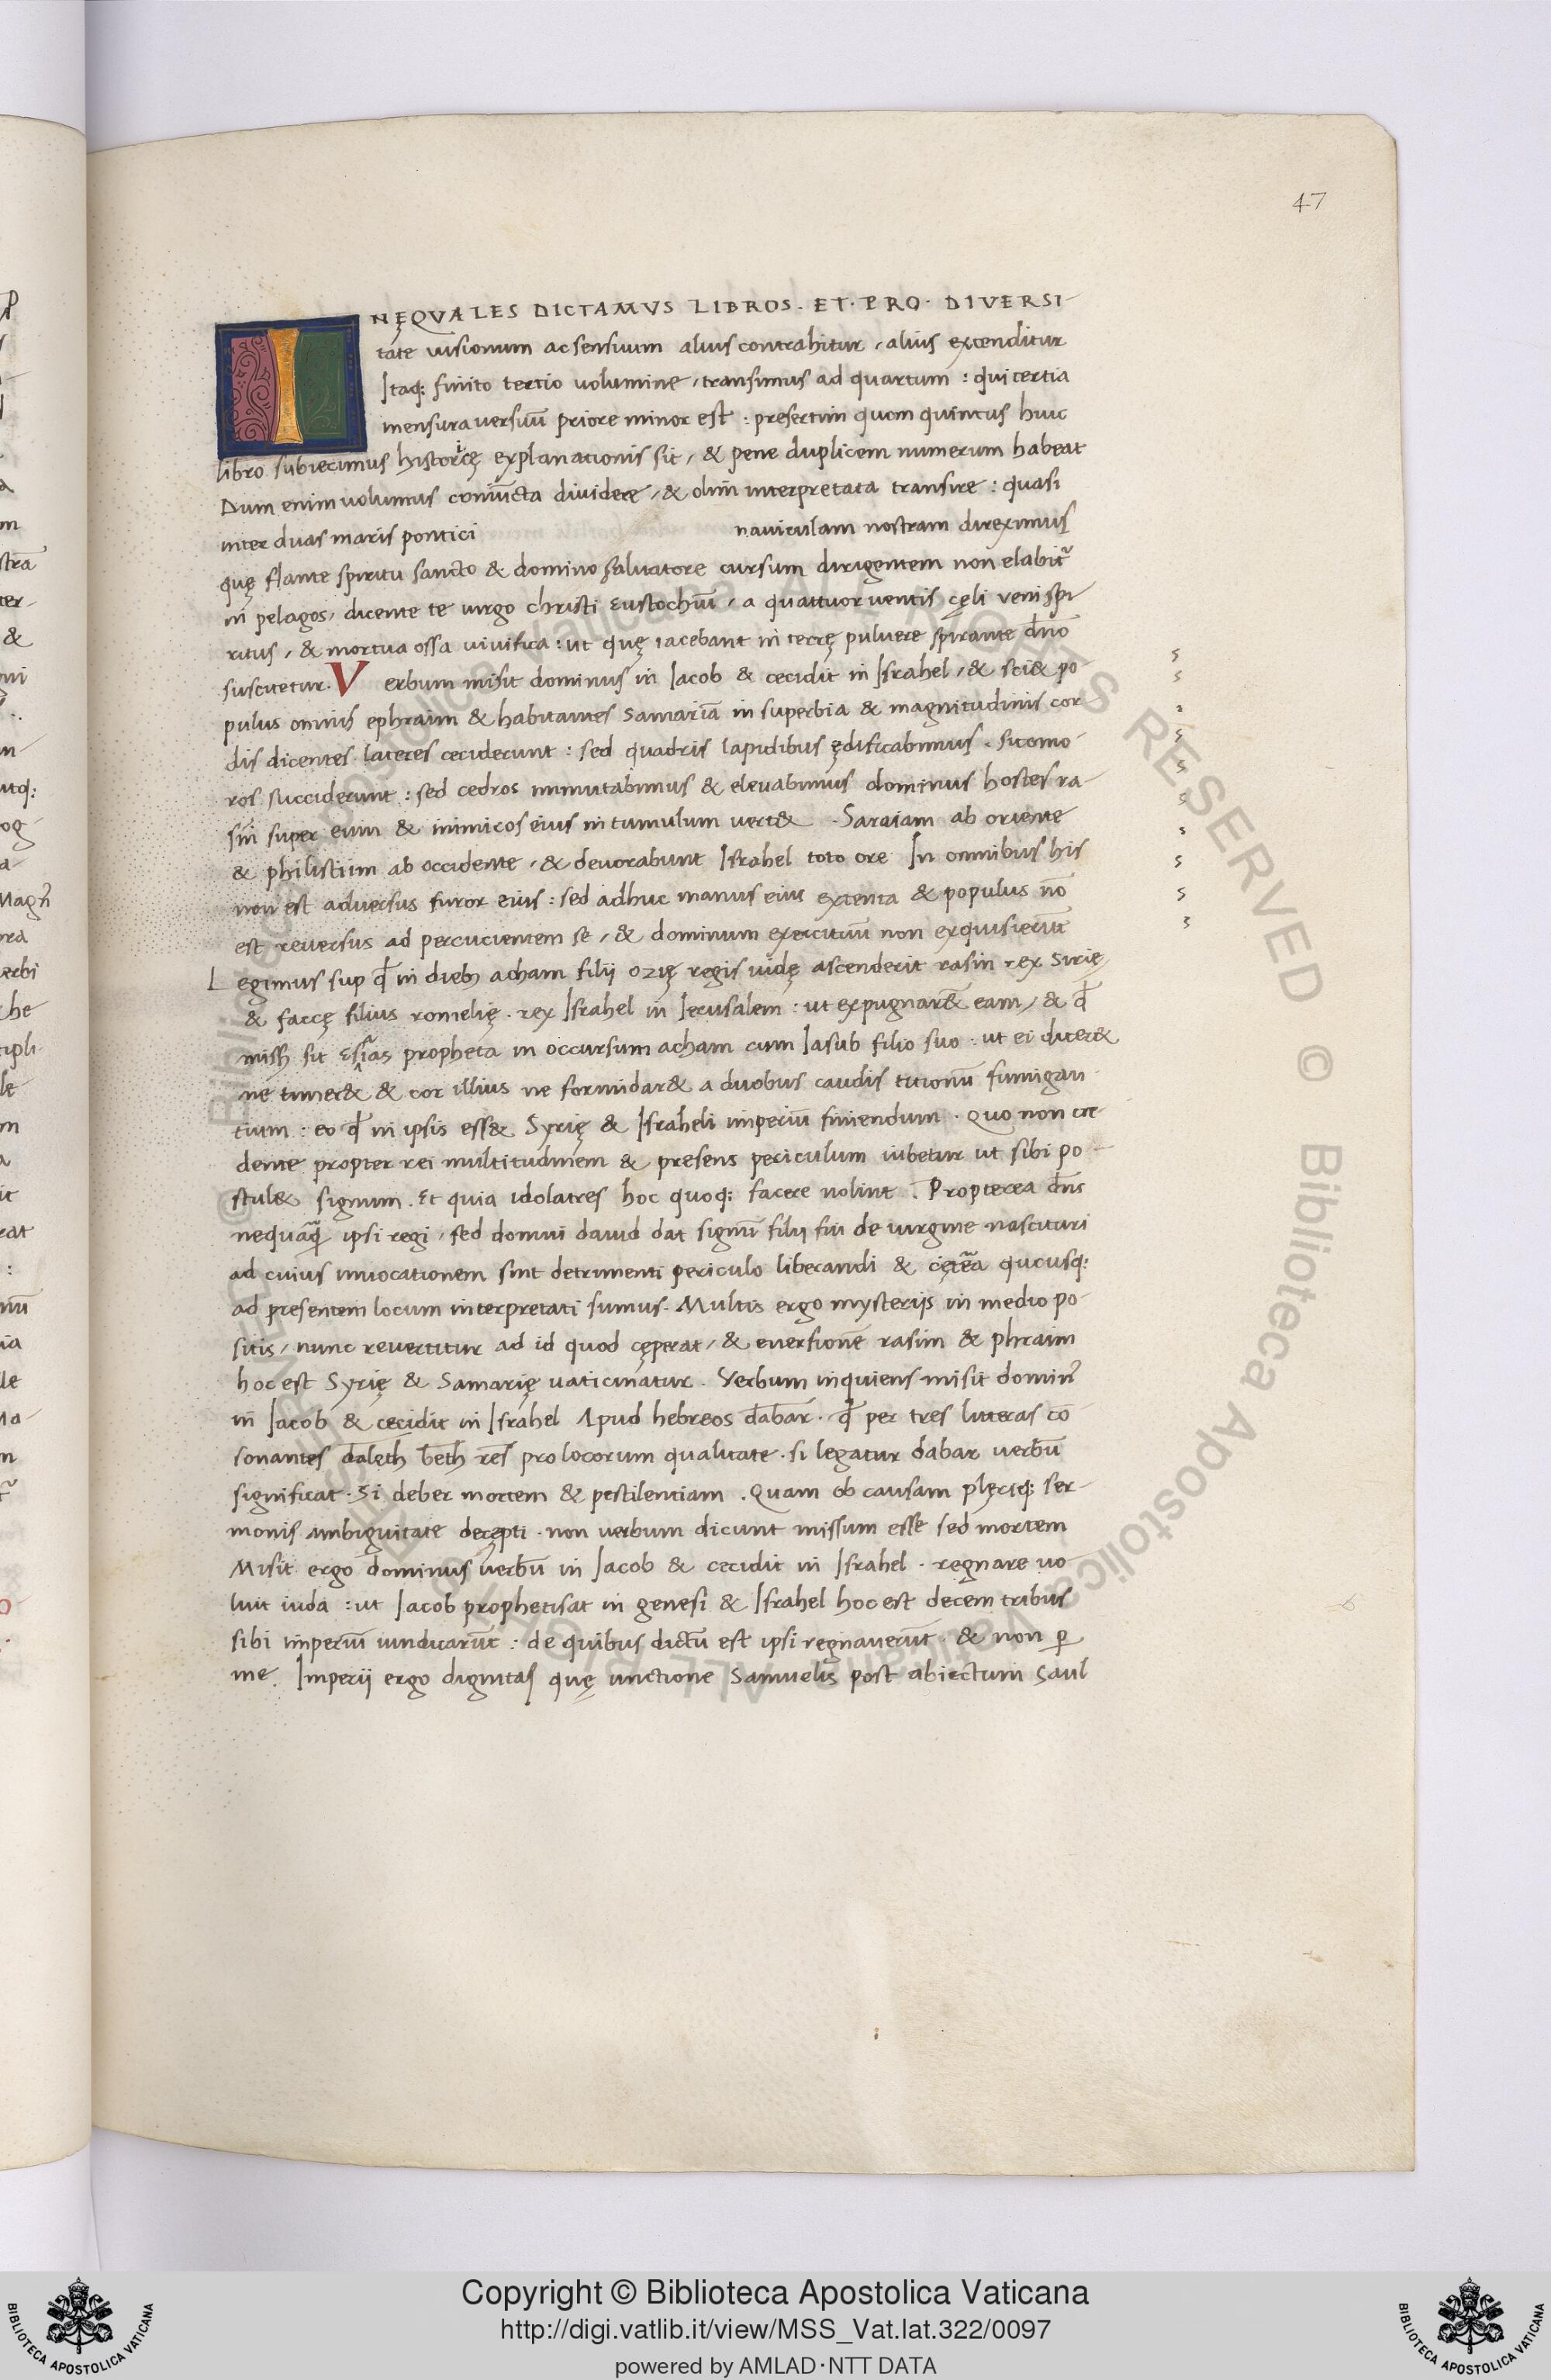 47
INĘQVALES DICTAMVS LIBROS. ET. PRO. DIVERSI-
tate uisionum ac sensuum alius contrahitur, alius extenditur
Itaq; finito tertio uolumine, transimus ad quartum : qui tertia
mensura versuū priore minor est : presertim quom quintus huic
libro subiecimus historicę explanationis sit, & pene duplicem numerum habeat
Dum enim uolumus coniūcta dividere, & olim interpretata transire : quasi
inter duas maris pontici naviculam nostram direximus
quę flante spiritu sancto & domino salvatore cursum dirigentem non elabit̃
in pelagos, dicente te uirgo christi Eustochiū, a quattuor ventis cęli veni spi
ritus, & mortua ossa vivifica : ut quę iacebant in terrę pulvere spirante dn̄o
suscitetur. Verbum misit dominus in Jacob & cecidit in Israhel, & sci& po-
pulus omnis ephraim & habitantes Samariā in superbia & magnitudinis cor
dis dicentes. lateres ceciderunt : sed quadris lapidibus ędificabimus. sicomo-
ros succiderunt : sed cedros immutabimus & elevabimus dominus hostes ra-
sin super eum & inimicos eius in tumulum vert& . Saraiam ab oriente
& philistiim ab occidente, & devorabunt Israhel toto ore In omnibus his
non est adversus furor eius : sed adhuc manus eius extenta & populus nō
est reversus ad percucientem se, & dominum exercituū non exquisierūt
Legimus sup q̄ in dieb; acham filij ozię regis iudę ascenderit rasin rex Sirię
& faccę filius romelię. rex Israhel in Jerusalem : ut expugnar& eam, & q̄
miss; sit Esaias propheta in occursum acham cum Jasub filio suo : ut ei dicer&
ne timer& & cor illius ne formidar& a duobus caudis titionū fumigan-
tium : eo q̄ in ipsis ess& Syrię & Israheli imperiū finiendum. Quo non cre-
dente propter rei multitudinem & presens periculum iubetur ut sibi po-
stul& signum. Et quia idolatres hoc quoq; facere nolint. Propterea dn̄s
nequaq̄ ipsi regi, sed domui david dat signū filij sui de virgine nascituri
ad cuius invocationem sint detrimenti periculo liberandi & cętera qucusq;
ad presentem locum interpretati sumus. Multis ergo mysterijs in medio po-
sitis, nunc revertitur ad id quod cęperat, & eversionē rasim & phraim
hoc est Syrię & Samarię vaticinatur. Verbum inquiens misit domin⁹
in Jacob & cecidit in Israhel Apud hebreos dabar. q̄ per tres litteras cō
sonantes daleth beth res pro locorum qualitate. si legatur dabar verbū
significat. Si deber mortem & pestilentiam. Quam ob causam plęriq; ser-
monis ambiguitate decępti. non verbum dicunt missum esse sed mortem
Misit ergo dominus verbū in Jacob & cecidit in Israhel. regnare uo-
luit iuda : ut Jacob prophetisat in genesi & Israhel hoc est decem tribus
sibi imperiū uindicarūt : de quibus dictū est ipsi regnaverūt. & non ꝑ
me. Imperij ergo dignitas quę unctione Samuelis post abiectum Saul
Copyright © Biblioteca Apostolica Vaticana
http://digi.vatlib.it/view/MSS_Vat.lat.322/0097
powered by AMLAD·NTT DATA